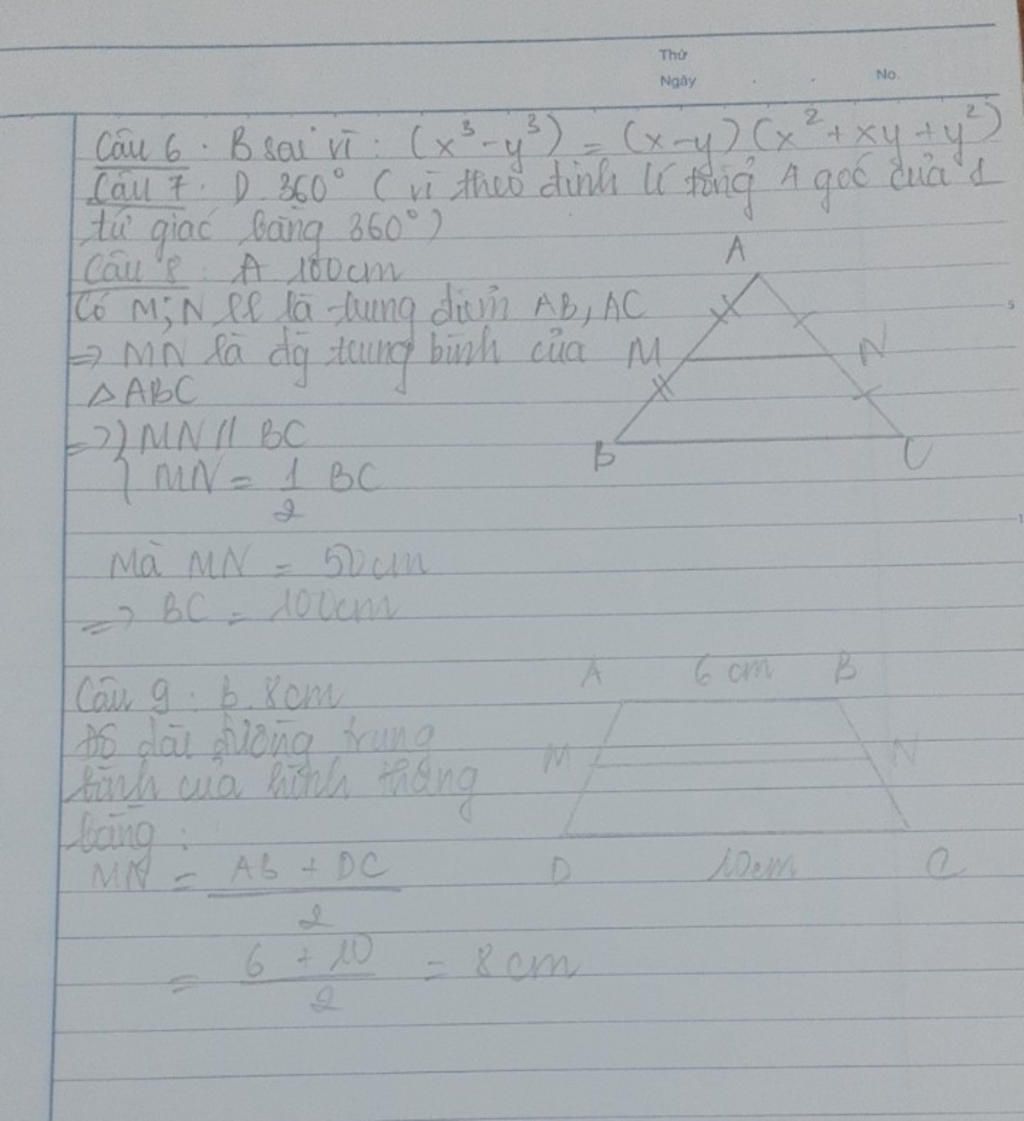 Thứ
Ngày . . No.
Câu 6 . B sai vì : (x³ - y³) = (x - y) (x² + xy + y²)
Câu 7 . D. 360° ( vì theo định lí tổng 4 góc của 1
tứ giác bằng 360°)
Câu 8 : A 100cm
A
Có M;N ll là trung điểm AB, AC
=> MN là đg trung bình của
M N
△ABC
=> } MN // BC
B C
} MN = 1/2 BC
Mà MN = 50cm
=> BC = 100cm
A 6 cm B
Câu 9 : b. 8cm
Độ dài đường trung
M N
bình của hình thang
bằng :
D 10cm C
MN = (AB + DC)/2
= (6 + 10)/2 = 8 cm